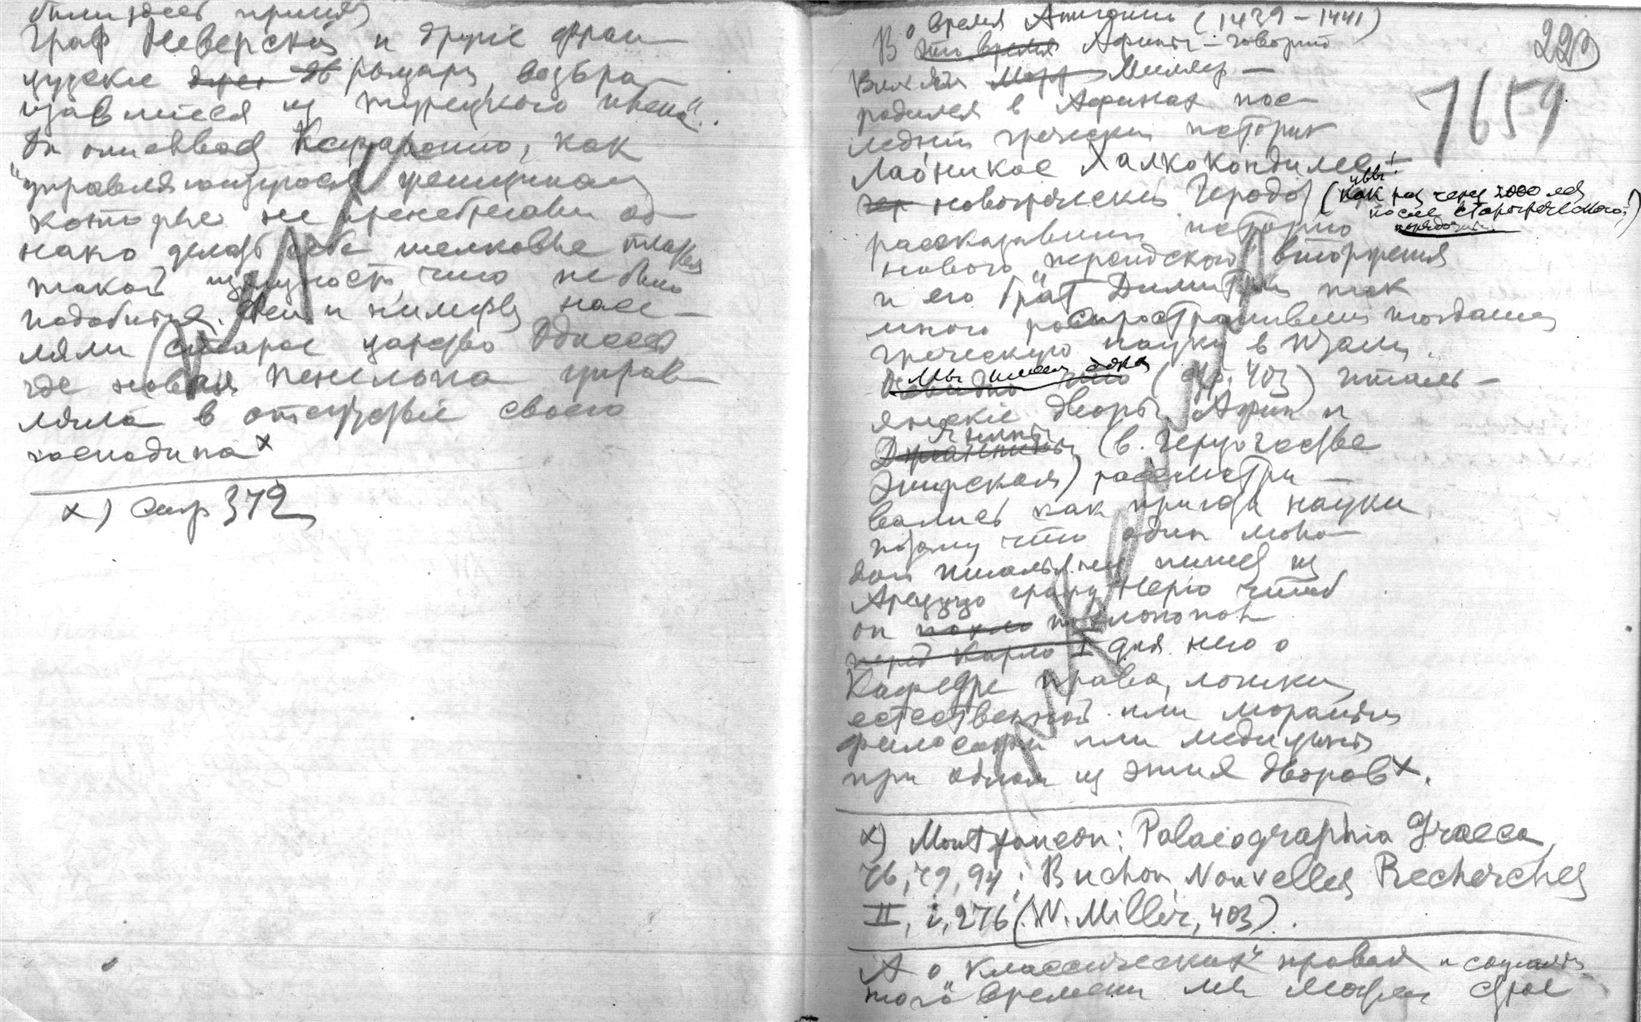 были здесь приняты
Граф Неверский и другие фран-
цузские рыцари, возвра-
щавшиеся из турецкого плена".
Он описывает Кефалонию, как
"управляющуюся женщинами
которые не пренебрегали од-
нако делать себе шелковые платья
такой изящности что не было
подобных. Феи и нимфы насе-
ляли старое царство Одиссея
где новая Пенелопа управ-
ляла в отсутствие своего
господина x
x) Стр 372
223
1659
Во время Антонио (1439-1441)
это время Афины - говорит
Вилльям Миллер -
родился в Афинах пос-
ледний греческий историк
Лаоникос Халкокондилес +
новогреческий Геродот (как раз через 2000 лет
после старогреческого)
рассказавший историю
нового персидского вторжения
и его брат Димитрий так
много распространивший тогдашнюю
греческую науку в Италии.
(стр. 403) италь-
янские дворы Афин и
Янины (в Герцогстве
Эпирском) рассматри-
вались как приюты науки
потому что один моло-
дой итальянец пишет из
Ареццо графу Нерио чтоб
он похлопотал
перед Карло I для него о
Кафедре права, логики,
естественной или моральной
философии или медицины
при одном из этих дворов x.
x) Montfaucon: Palaeographia Graeca
76, 79, 94; Buchon, Nouvelles Recherches
II, i, 276 (W. Miller, 403).
А о "классических" нравах и
того времени мы можем